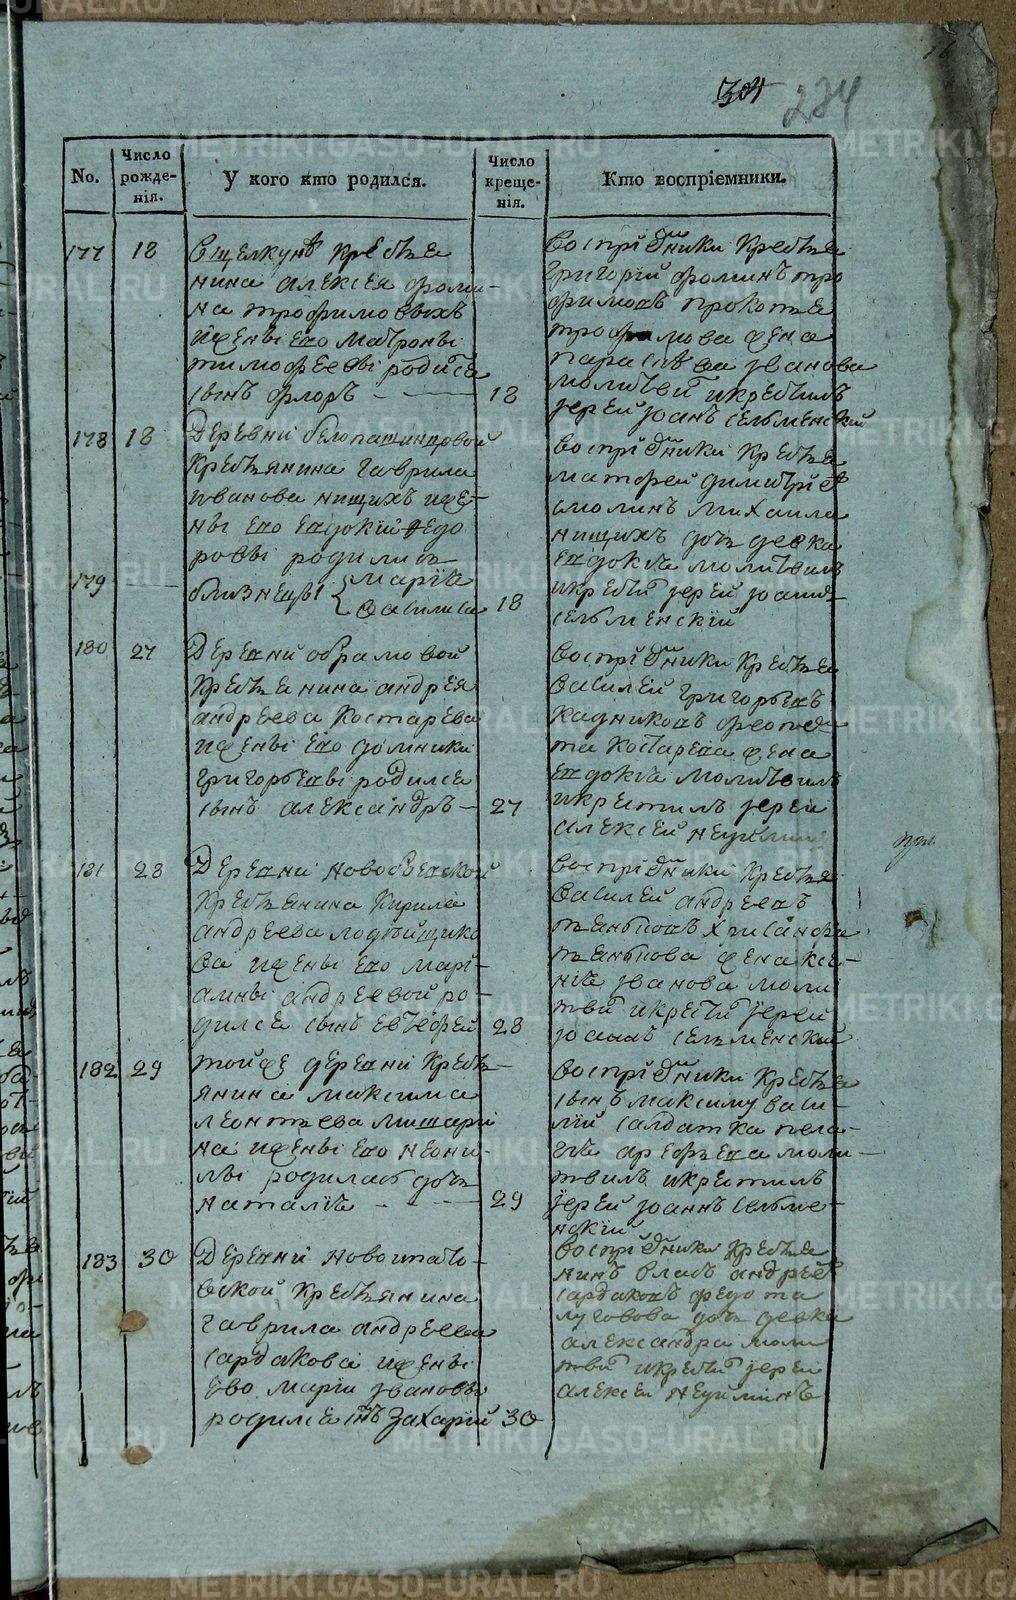 304 234
No. Число рожде-нія. У кого кто родился. Число креще-нія. Кто воспріемники.
177 18
вщелкунѣ кресьтья
нина алексея фоми-
на трофимовыхъ
ижены его матроны
тимофеевы родился
сынъ флоръ 18
воспріемники кресьтья
григорій фоминъ тро
фимовъ прокопья
трофимова жена
парасковья іванова
молитвил икрестилъ
іерей іоанъ сельменскій
178 18
деревни белопашинцовой
крестьянина гаврила
иванова нищихъ иже-
ны его евдокіи федо
ровы родились
179
близнецы марія
василиса 18
воспріемники кресьтья
матфей димитріев
смолинъ михаила
нищихъ дочь девка
евдокія молитвилъ
икрестил іерей іоаннъ
сельменскій
180 27
деревни обрамовой
крестьянина андрея
андреева костарева
ижены его домники
григорьевы родился
сынъ александръ 27
воспріемники кресьтья
василей григорьевъ
кадниковъ
костарева жена
евдокія молитвилъ
икрестилъ іерей
алексей неуйминъ
181 28
деревни
крестьянина кирила
андреева
ва ижены его марі-
амны андреевой ро-
дился сынъ евсефей 28
воспріемники кресьтья
василей андреевъ
пьянковъ хрисанфа
пьянкова жена ксе-
нія іванова моли
твил икрестил іерей
іоаннъ сельменскій
182 29
тойже деревни кресть-
янина максима
леонтьева мишари
на ижены его неони-
лы родилась дочь
наталія 29
воспріемники кресьтья
сынъ максиму васи-
лій салдатка пела-
гія арефьева моли-
твилъ икрестилъ
іерей іоаннъ сельме-
нскій
183 30
деревни новоипато-
вской крестьянина
гаврила андреева
сардакова ижены
ево маріи івановы
родился сынъ захарій 30
воспріемники кресьтья
нинъ власъ андреев
сардаковъ федота
луговова дочь девка
александра моли
твил икрестил іерей
алексей неуйминъ